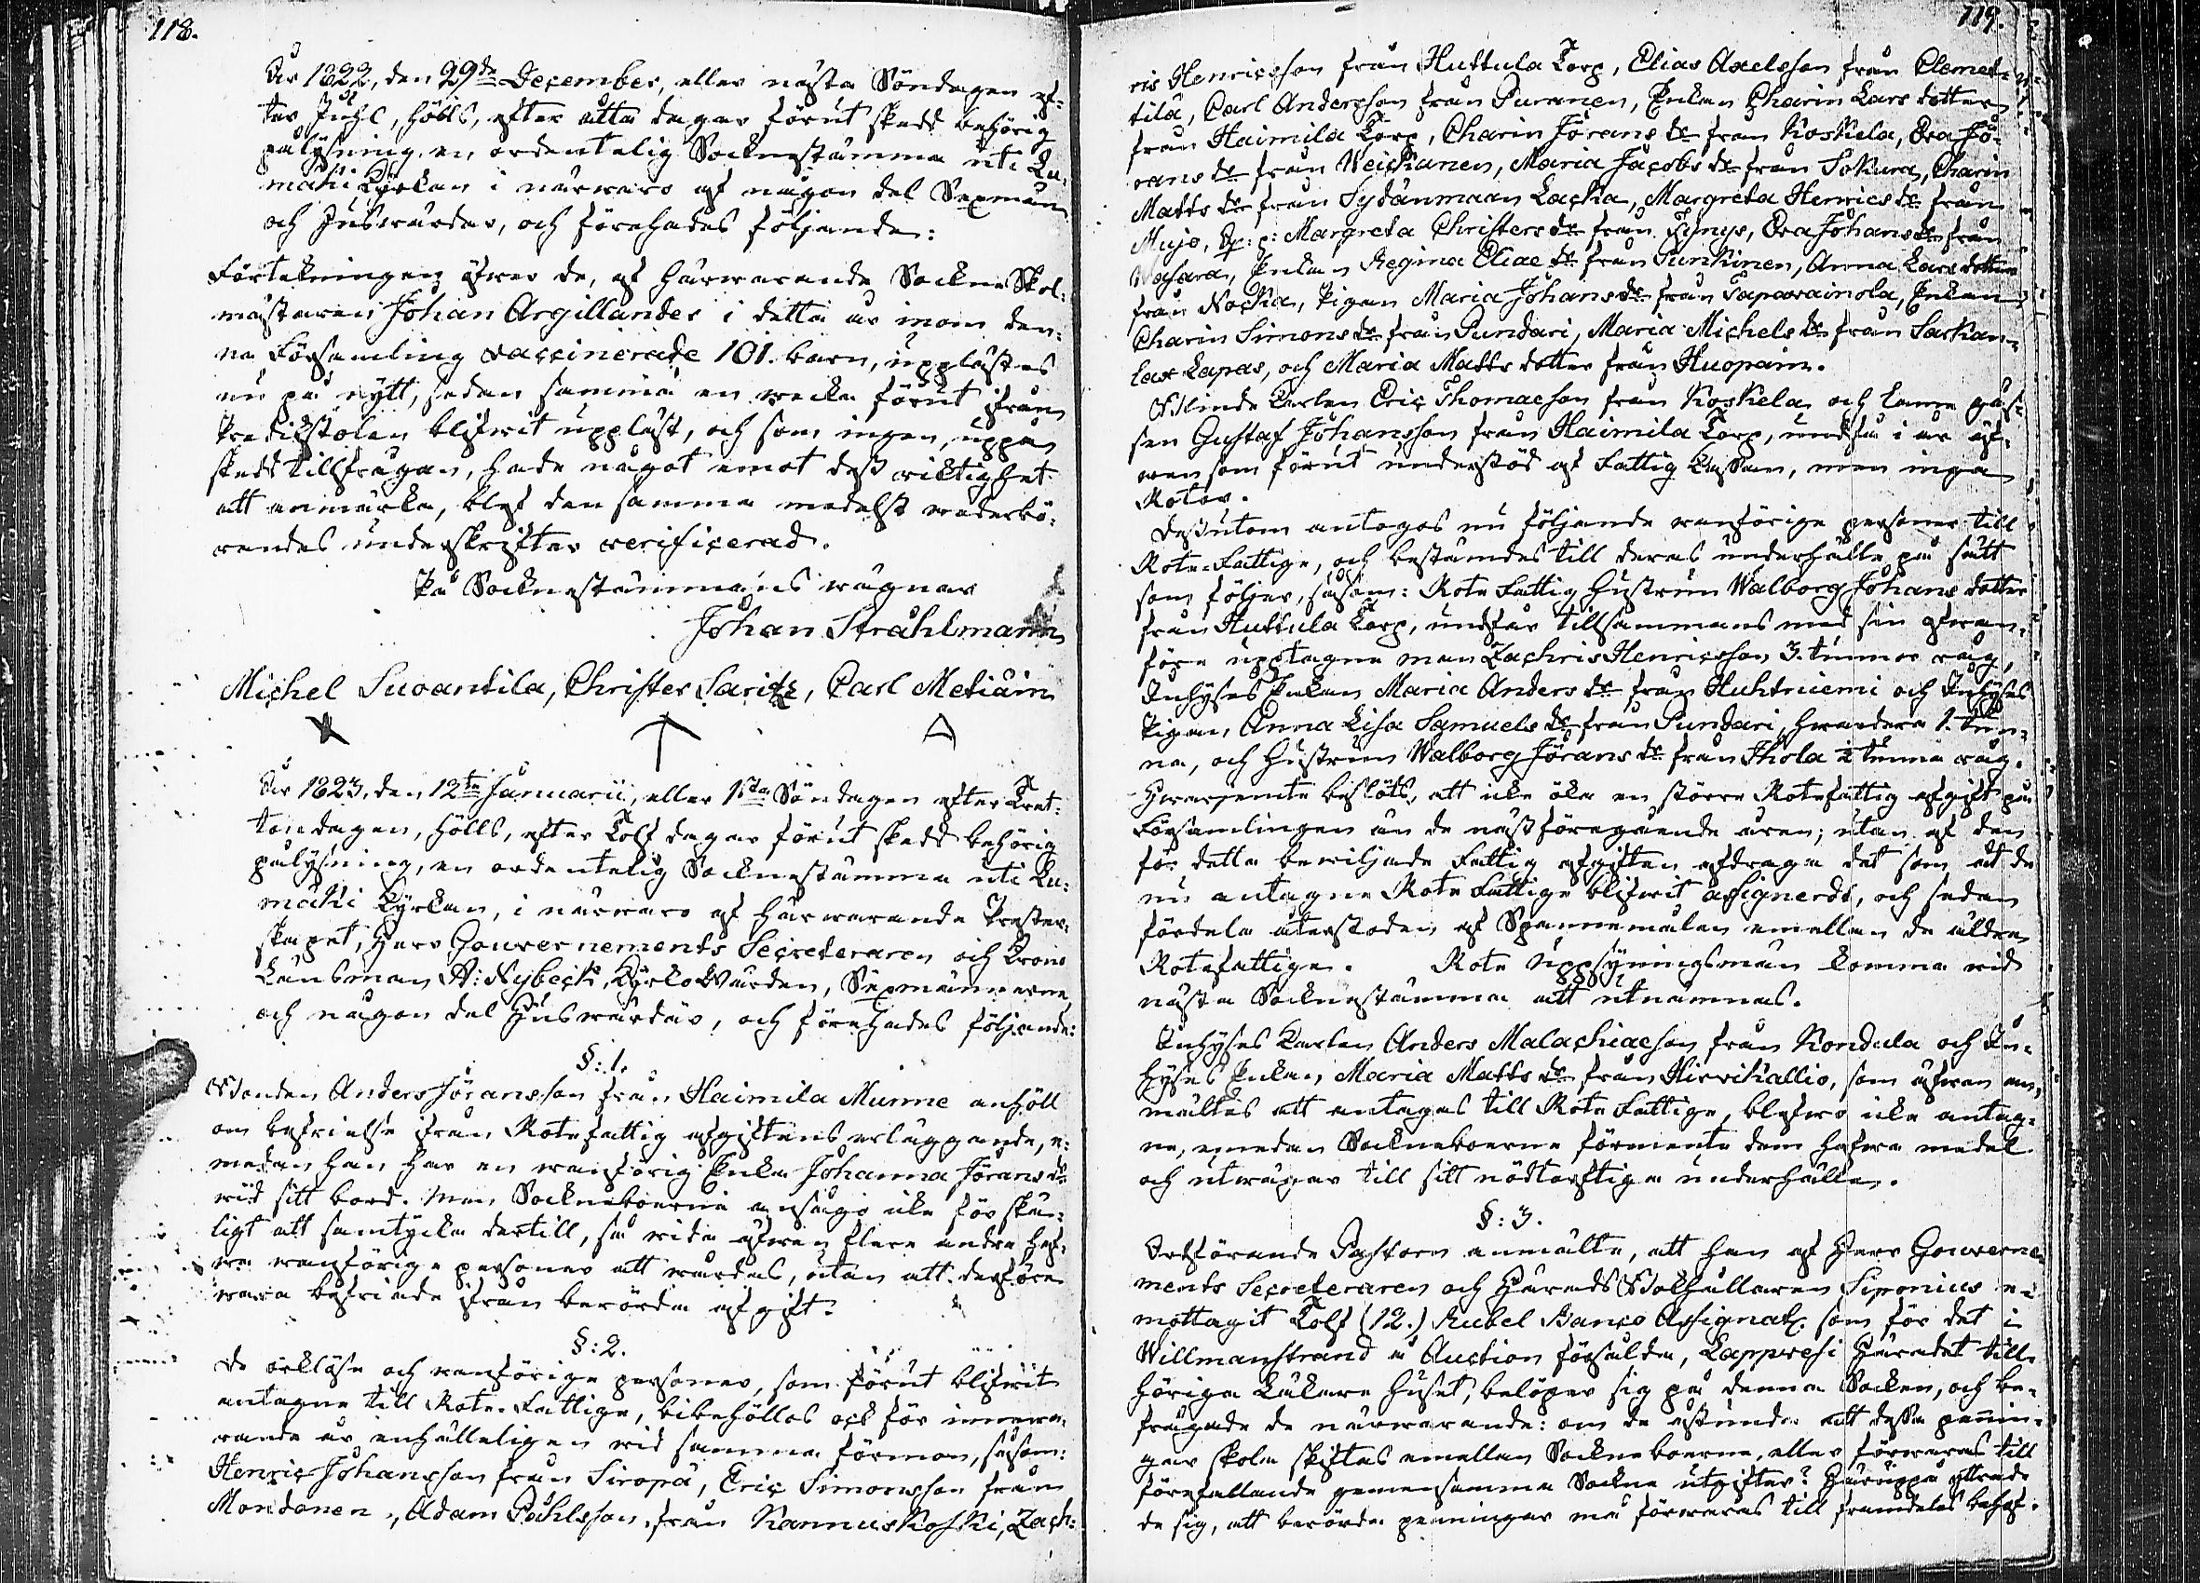 118.
År 1822, den 29de December, eller nästa Söndagen ef-
ter Juhl, hölls, efter åtta dagar förut skedd behörig
pålysning, en ordentelig Socknestämma uti Lu-
mäki Kyrkan i närwaro af någon del Sexmän
och Huswärdar, och förehades följande:
Förtekningen öfwer de, af härwarande Sockne Skol-
mästaren Johan Argillander i detta år inom den-
na Församling vaccinerade 101. barn, upplästes
nu på nytt, sedan samma en wecka förut ifrån
Predikstolen blifwit uppläst, och som ingen, uppå
skedd tillfrågan, hade något emot dess riktighet
att anmärka, blef den samma medelst wederbö-
randes underskrifter verificerad.
På Socknestämmans wägnar
Johan Stråhlmann
Michel Suoantila, Christer Saritz, Carl Metiäin
År 1823, den 12te Januarii, eller 1sta Söndagen efter Tret-
tondagen, hölls, efter Tolf dagar förut skedd behörig
pålysning, en ordentelig Socknestämma uti Lu-
mäki Kyrkan, i närwaro af härwarande Prester-
skapet, Herr Gouvernements Secreteraren och Krono
Länsman A: Nybeck, Kyrko Wärden, Sexmännerne,
och någon del Huswärdar, och förehades följande:
§: 1.
Bonden Anders Jöransson från Haimila Munne anhöll
om befrielse ifrån Rotefattig afgiftens erläggande, e-
medan han har en wanförig Enka Johanna Jöransdr
wid sitt bord. Men Sockneboerne ansågo icke för skä-
ligt att samtycka dertill, så wida äfwen flere andre haf-
wa wanförige personer att wårdas, utan att derföre
wara befriade ifrån berörda afgift.
§: 2.
De orklöse och wanförige personer, som förut blifwit
antagne till Rote-Fattige, bibehöllos ock för innewa-
rande år enhälleligen wid samma förmon, såsom:
Henric Johansson från Siropä, Eric Simonsson från
Mondonen, Adam Påhlsson från Kannuskoski, Zach-
119.
ris Henricsson från Huttula Torp, Elias Axelsson från Clemet-
tilä, Carl Andersson från Puranen, Enkan Charin Lars dotter
från Haimila Torp, Charin Jörans dr från Koskela, Eva Jö-
rans dr från Weickanen, Maria Jacobs dr från Sokura, Charin
Matts dr från Sydänmaan Lacka, Margreta Henrics dr från
Mujo, Margreta Christers dr från Eynys, Eva Johans dr från
Wasara, Enkan Regina Eliae dr från Punkinen, Anna Lars dotter
från Nocka, Pigan Maria Johans dr från Saparainola, Enkan
Charin Simons dr från Pundari, Maria Michels dr från Sarkan-
lax Lapas, och Maria Matts dotter från Huopain.
Blinde Karlen Eric Thomasson från Koskela och lame gås-
sen Gustaf Johansson från Haimila Torp, undfå i år äf-
wen som förut understöd af Fattig Cassan, men inga
Rotar.
Dessutom antogos nu följande wanförige personer till
Rote-Fattige, och bestämdes till deras underhålle på sätt
som följer, såsom: Rote Fattig Hustrun Walborg Johans dotter
från Huttula Torp, undfår tillsammans med sin ofwan-
före upptagne man Zachris Henricsson 3. tunnor råg,
Inhyses Enkan Maria Anders dr från Huhtniemi och Inhyses
Pigan, Anna Lisa Samuels dr från Pundari, hwardera 1. tun-
na, och Hustrun Walborg Jörans dr från Ihola ½ tunna råg.
Hwarjemte beslöts, att icke öka en större Rotefattig afgift på
Församlingen än de näst föregående åren; utan af den
för detta bewiljade Fattig afgiften afdraga det som åt de
nu antagne Rote Fattige blifwit assignerdt, och sedan
fördela återstoden af Spannemålen emellan de äldre
Rotefattige. Rote Uppsyningsmän komma wid
nästa Socknestämma att utnämnas.
Inhyses Karlen Anders Malachiasson från Kondula och In-
hyses Enkan, Maria Matts dr från Hirvikallio, som äfwen an-
mältes att antagas till Rote Fattige, blefwo icke antag-
ne, emedan Sockneboerne förmente dem hafwa medel
och utwägar till sitt nödtorftiga underhålle.
§: 3.
Ordförande Pastorn anmälte, att han af Herr Gouverne-
ments Secreteraren och Härads Bokhållaren Siponius e-
mottagit Tolf (12.) Rubel Banco Assignat. som för det i
Willmanstrand å Auction försålda, Lappvesi Häradet till-
höriga Läkare huset, belöper sig på denna Socken, och be-
frågade de närwarande: om de åstunda att dessa pennin-
gar skola skiftas emellan Sockneboerne, eller förwaras till
förefallande gemensamma Sockne utgifter? Häruppå yttrade
de sig, att berörde penningar må förwaras till framdeles behof.